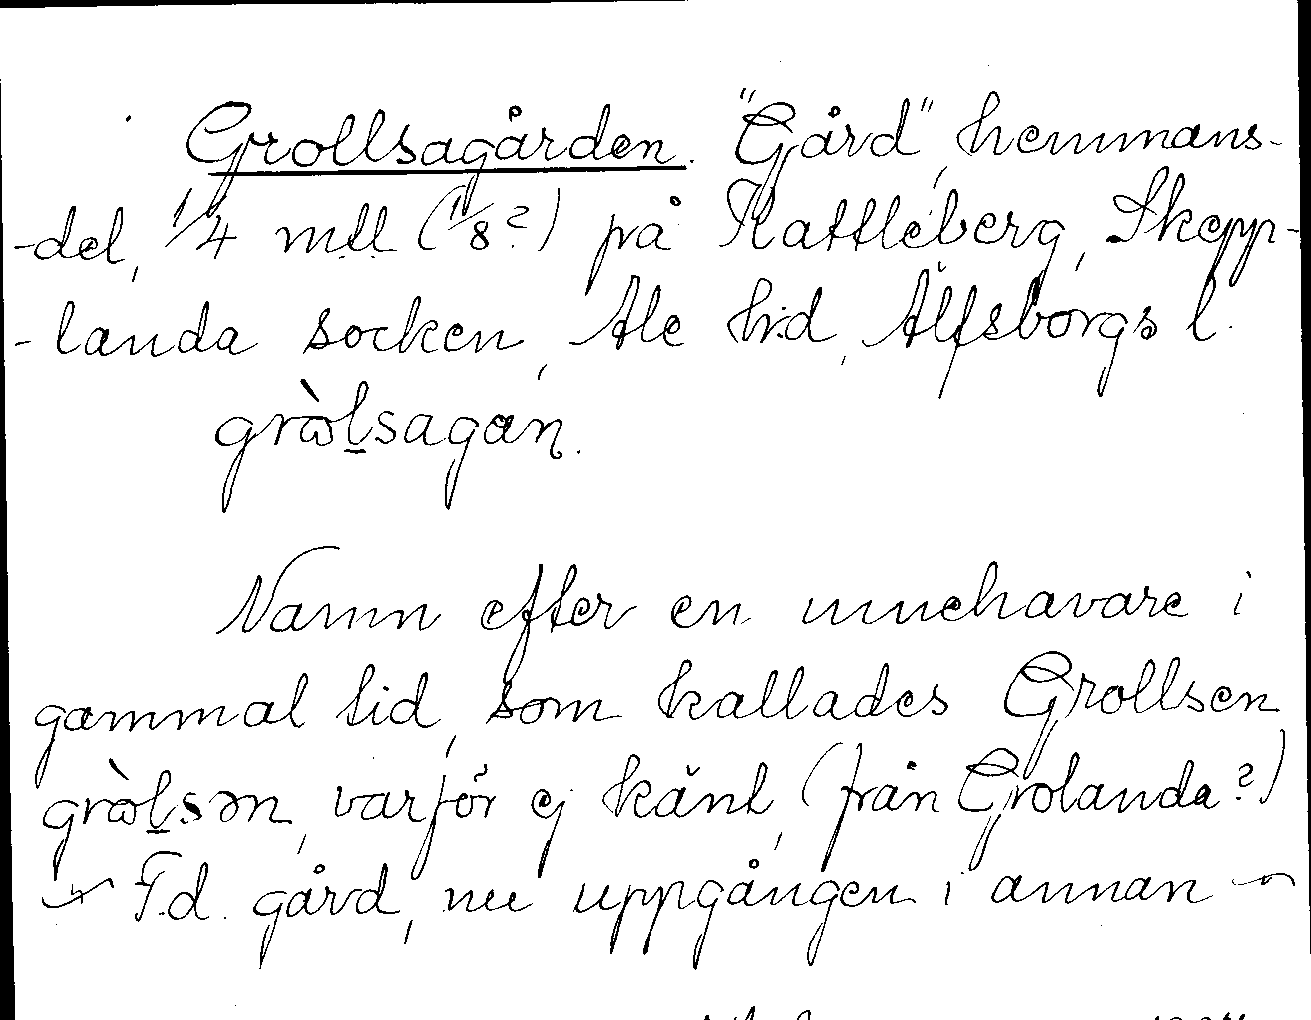 Grollsagården. "Gård", hemmans-
-del, 1/4 mtl (1/8?) på Kattleberg, Skepp-
-landa socken, Ale hd, Älfsborgs l.
grὼlsagan.
Namn efter en innehavare i
gammal tid, som kallades Grollsen
grὼlsən, varför ej känt, (från Grolanda?)
F.d. gård, nu uppgången i annan